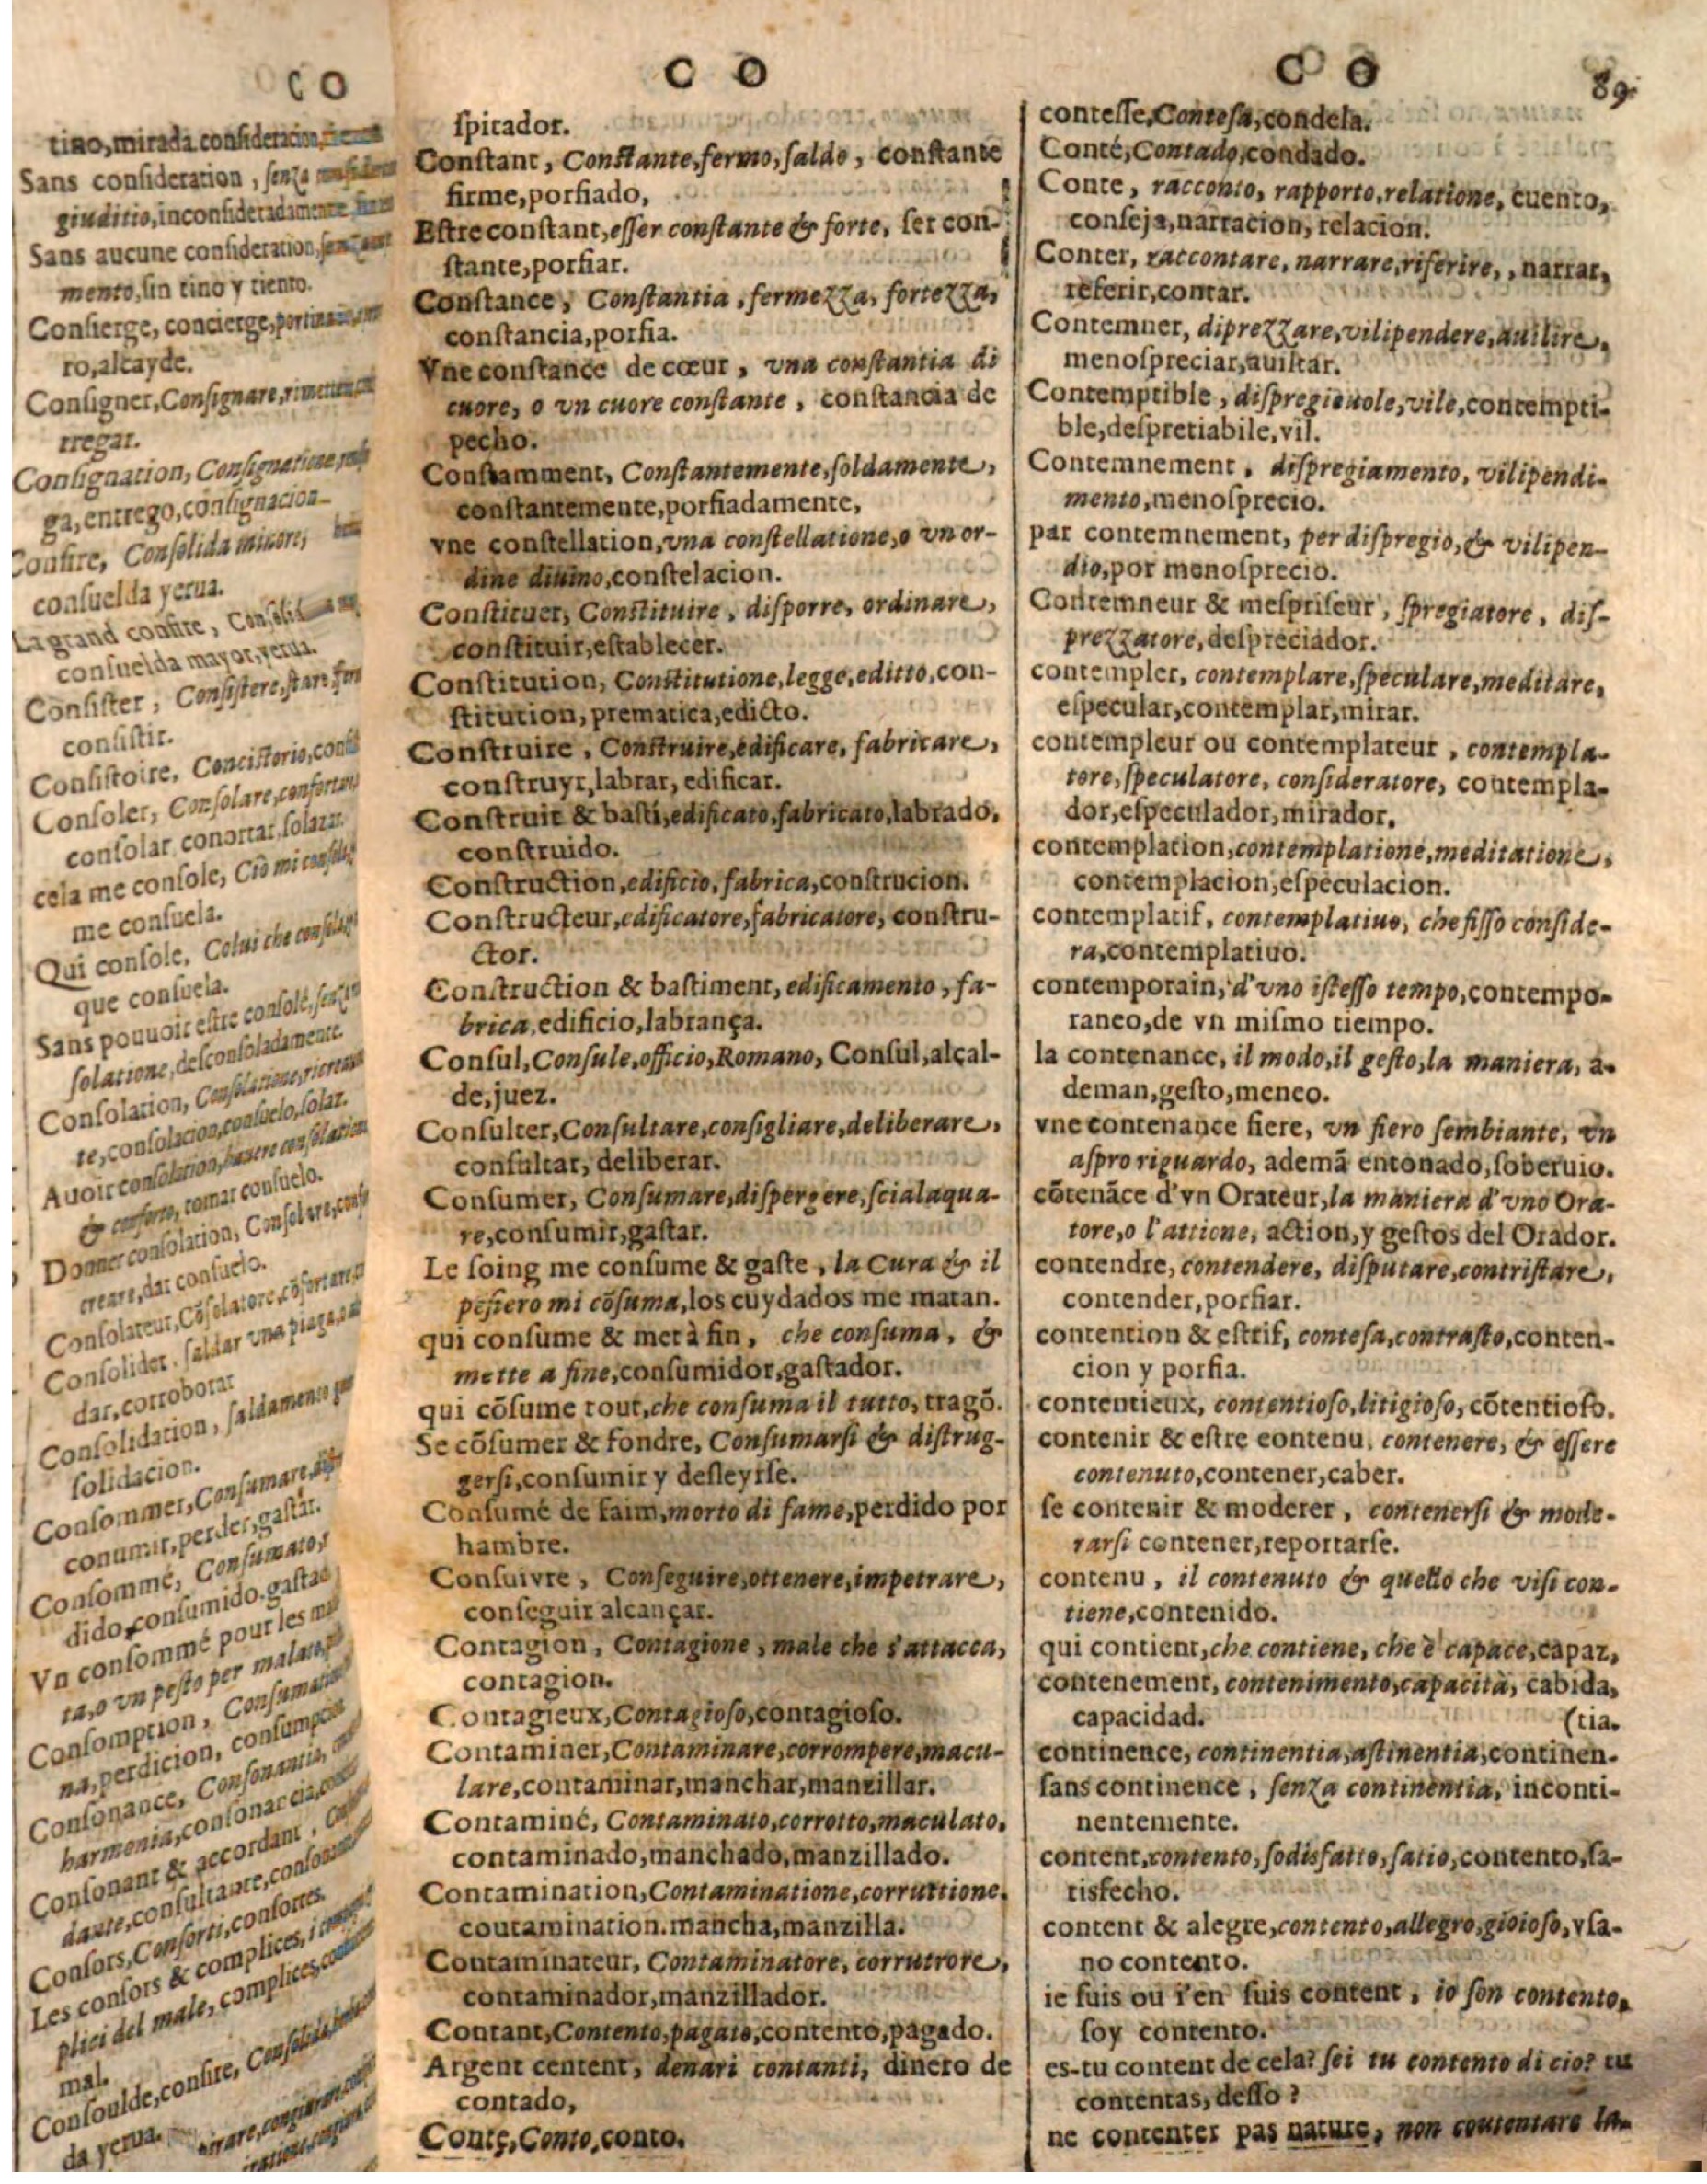 C O
tino, mirada consideracion,
Sans consideration, senza
giuditio, inconsideradamente
Sans aucune consideration,
mento, sin tino y tiento.
Consierge, concierge,
ro, alcayde.
Consigner, Consignare,
tregar.
Consignation, Consignatione
ga, entrego, consignacion
Consire, Consolida minore,
consuelda yerua.
La grand consire,
consuelda mayor, yerua.
Consister, Consistere, stare
consistir.
Consistoire, Concistorio,
Consoler, Consolare,
consolar, conortar, solazar.
cela me console, Ciò mi
me consuela.
Qui console, Celui che
que consuela.
Sans pouuoir estre consolé,
solatione, desconsoladamente.
Consolation, Consolatione,
te, consolacion, consuelo, solaz.
Auoir consolation, hauere consolatione
& conforto, tomar consuelo.
Donner consolation, Consolare,
creare, dar consuelo.
Consolateur, Cõsolatore,
Consolider, saldar vna piaga,
dar, corroborar
Consolidation, saldamento
solidacion.
Consommer, Consumare,
conumir, perder, gastar.
Consommé, Consumato,
dido, consumido, gastado
Vn consommé pour les
ta, o vn pesto per malato,
Consomption,
na, perdicion,
Consonance, Consonantia,
harmonia, consonancia,
Consonant & accordant,
dante, consultante,
Consors, Consorti, consortes.
Les consors & complices,
plici del male, complices
mal.
Consoulde, consire,
da yerua.
C O
spirador.
Constant, Constante, fermo, saldo, constante
firme, porfiado,
Estre constant, esser constante & forte, ser con-
stante, porfiar.
Constance, Constantia, fermezza, fortezza,
constancia, porfia.
Vne constance de cœur, vna constantia di
cuore, o vn cuore constante, constancia de
pecho.
Constamment, Constantemente, soldamente,
constantemente, porfiadamente,
vne constellation, vna constellatione, o vn or-
dine diuino, constelacion.
Constituer, Constituire, disporre, ordinare,
constituir, establecer.
Constitution, Constitutione, legge, editto, con-
stitution, prematica, edicto.
Construire, Construire, edificare, fabricare,
construyr, labrar, edificar.
Construit & basti, edificato, fabricato, labrado,
construido.
Construction, edificio, fabrica, construcion.
Constructeur, edificatore, fabricatore, constru-
ctor.
Construction & bastiment, edificamento, fa-
brica, edificio, labrança.
Consul, Consule, officio, Romano, Consul, alçal-
de, juez.
Consulter, Consultare, consigliare, deliberare,
consultar, deliberar.
Consumer, Consumare, dispergere, scialaqua-
re, consumir, gastar.
Le soing me consume & gaste, la Cura & il
pesiero mi cõsuma, los cuydados me matan.
qui consume & met à fin, che consuma, &
mette a fine, consumidor, gastador.
qui cõsume tout, che consuma il tutto, tragõ.
Se cõsumer & fondre, Consumarsi & distrug-
gersi, consumir y desleyrse.
Consumé de faim, morto di fame, perdido por
hambre.
Consuivre, Conseguire, ottenere, impetrare,
conseguir alcançar.
Contagion, Contagione, male che s'attacca,
contagion.
Contagieux, Contagioso, contagioso.
Contaminer, Contaminare, corrompere, macu-
lare, contaminar, manchar, manzillar.
Contaminé, Contaminato, corrotto, maculato,
contaminado, manchado, manzillado.
Contamination, Contaminatione, corruttione,
coutamination. mancha, manzilla.
Contaminateur, Contaminatore, corrutrore,
contaminador, manzillador.
Contant, Contento, pagato, contento, pagado.
Argent centent, denari contanti, dinero de
contado,
Conte, Conto, conto.
C O 89.
contesse, Contesa, condela.
Conté, Contado, condado.
Conte, racconto, rapporto, relatione, cuento,
conseja, narracion, relacion.
Conter, raccontare, narrare, riferire, , narrar,
referir, contar.
Contemner, diprezzare, vilipendere, auilire,
menospreciar, auiltar.
Contemptible, dispregieuole, vile, contempti-
ble, despretiabile, vil.
Contemnement, dispregiamento, vilipendi-
mento, menosprecio.
par contemnement, per dispregio, & vilipen-
dio, por menosprecio.
Contemneur & mespriseur, spregiatore, dis-
prezzatore, despreciador.
contempler, contemplare, speculare, meditare,
especular, contemplar, mirar.
contempleur ou contemplateur, contempla-
tore, speculatore, consideratore, coutempla-
dor, especulador, mirador.
contemplation, contemplatione, meditatione,
contemplacion, especulacion.
contemplatif, contemplatiuo, che fisso conside-
ra, contemplatiuo.
contemporain, d'vno istesso tempo, contempo-
raneo, de vn mismo tiempo.
la contenance, il modo, il gesto, la maniera, a-
deman, gesto, meneo.
vne contenance fiere, vn fiero sembiante, vn
aspro riguardo, ademã entonado, soberuio.
cõtenãce d'vn Orateur, la maniera d'vno Ora-
tore, o l'attione, action, y gestos del Orador.
contendre, contendere, disputare, contristare,
contender, porfiar.
contention & estrif, contesa, contrasto, conten-
cion y porfia.
contentieux, contentioso, litigioso, cõtentioso.
contenir & estre contenu, contenere, & essere
contenuto, contener, caber.
se contenir & moderer, contenersi & mode-
rarsi contener, reportarse.
contenu, il contenuto & quello che visi con-
tiene, contenido.
qui contient, che contiene, che è capace, capaz,
contenement, contenimento, capacità, cabida,
capacidad. (tia.
continence, continentia, astinentia, continen-
sans continence, senza continentia, inconti-
nentemente.
content, contento, sodisfatto, satio, contento, sa-
tisfecho.
content & alegre, contento, allegro, gioioso, vfa-
no contento.
ie suis ou i'en suis content, io son contento,
soy contento.
es-tu content de cela? sei tu contento di cio? tu
contentas, desso?
ne contenter pas nature, non contentare la-